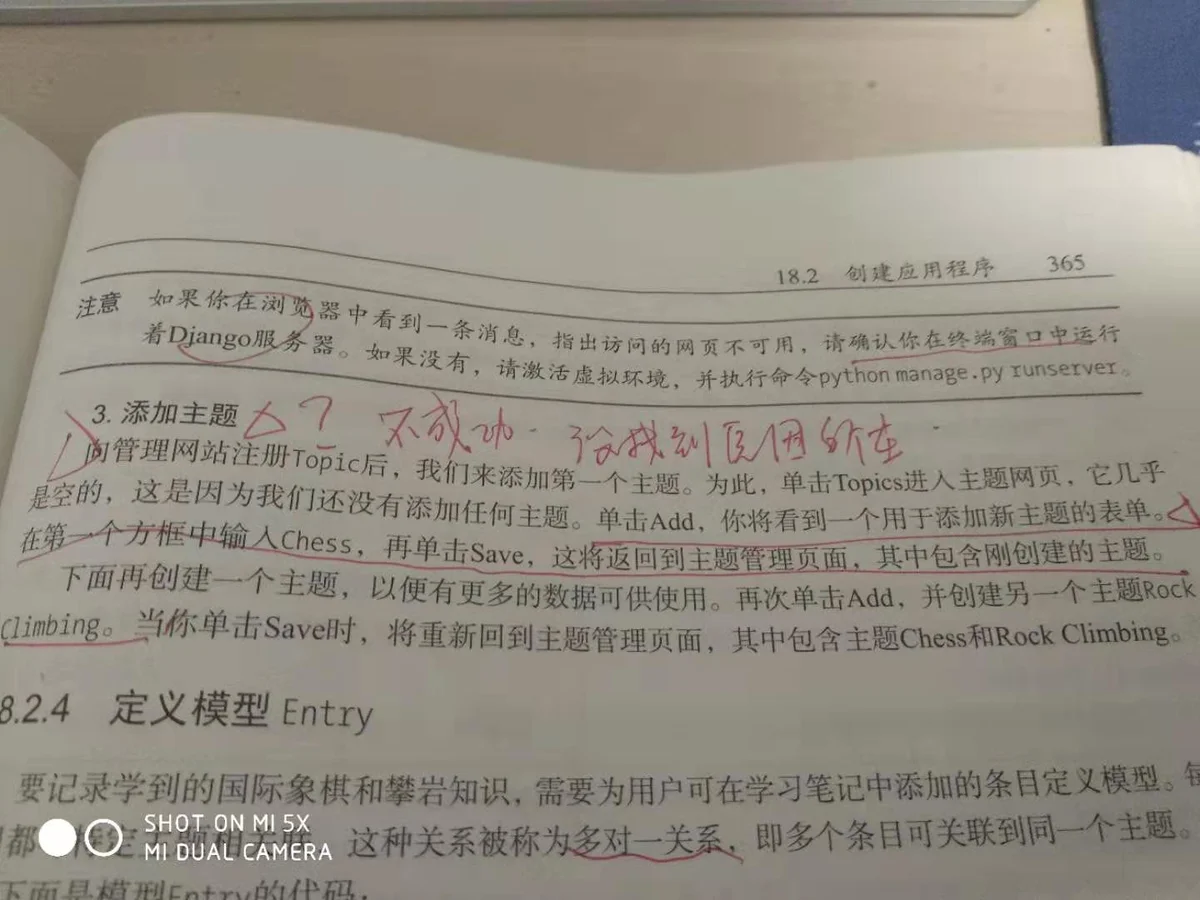 18.2 创建应用程序 365
注意 如果你在浏览器中看到一条消息，指出访问的网页不可用，请确认你在终端窗口中运行
着Django服务器。如果没有，请激活虚拟环境，并执行命令python manage.py runserver。
3. 添加主题 ? 不成功. 没找到原因所在
向管理网站注册Topic后，我们来添加第一个主题。为此，单击Topics进入主题网页，它几乎
是空的，这是因为我们还没有添加任何主题。单击Add，你将看到一个用于添加新主题的表单。
在第一个方框中输入Chess，再单击Save，这将返回到主题管理页面，其中包含刚创建的主题。
下面再创建一个主题，以便有更多的数据可供使用。再次单击Add，并创建另一个主题Rock
Climbing。当你单击Save时，将重新回到主题管理页面，其中包含主题Chess和Rock Climbing。
8.2.4 定义模型 Entry
要记录学到的国际象棋和攀岩知识，需要为用户可在学习笔记中添加的条目定义模型。每
都 特定主题相关联 这种关系被称为多对一关系，即多个条目可关联到同一个主题。
下面是模型Entry的代码：
SHOT ON MI 5X
MI DUAL CAMERA